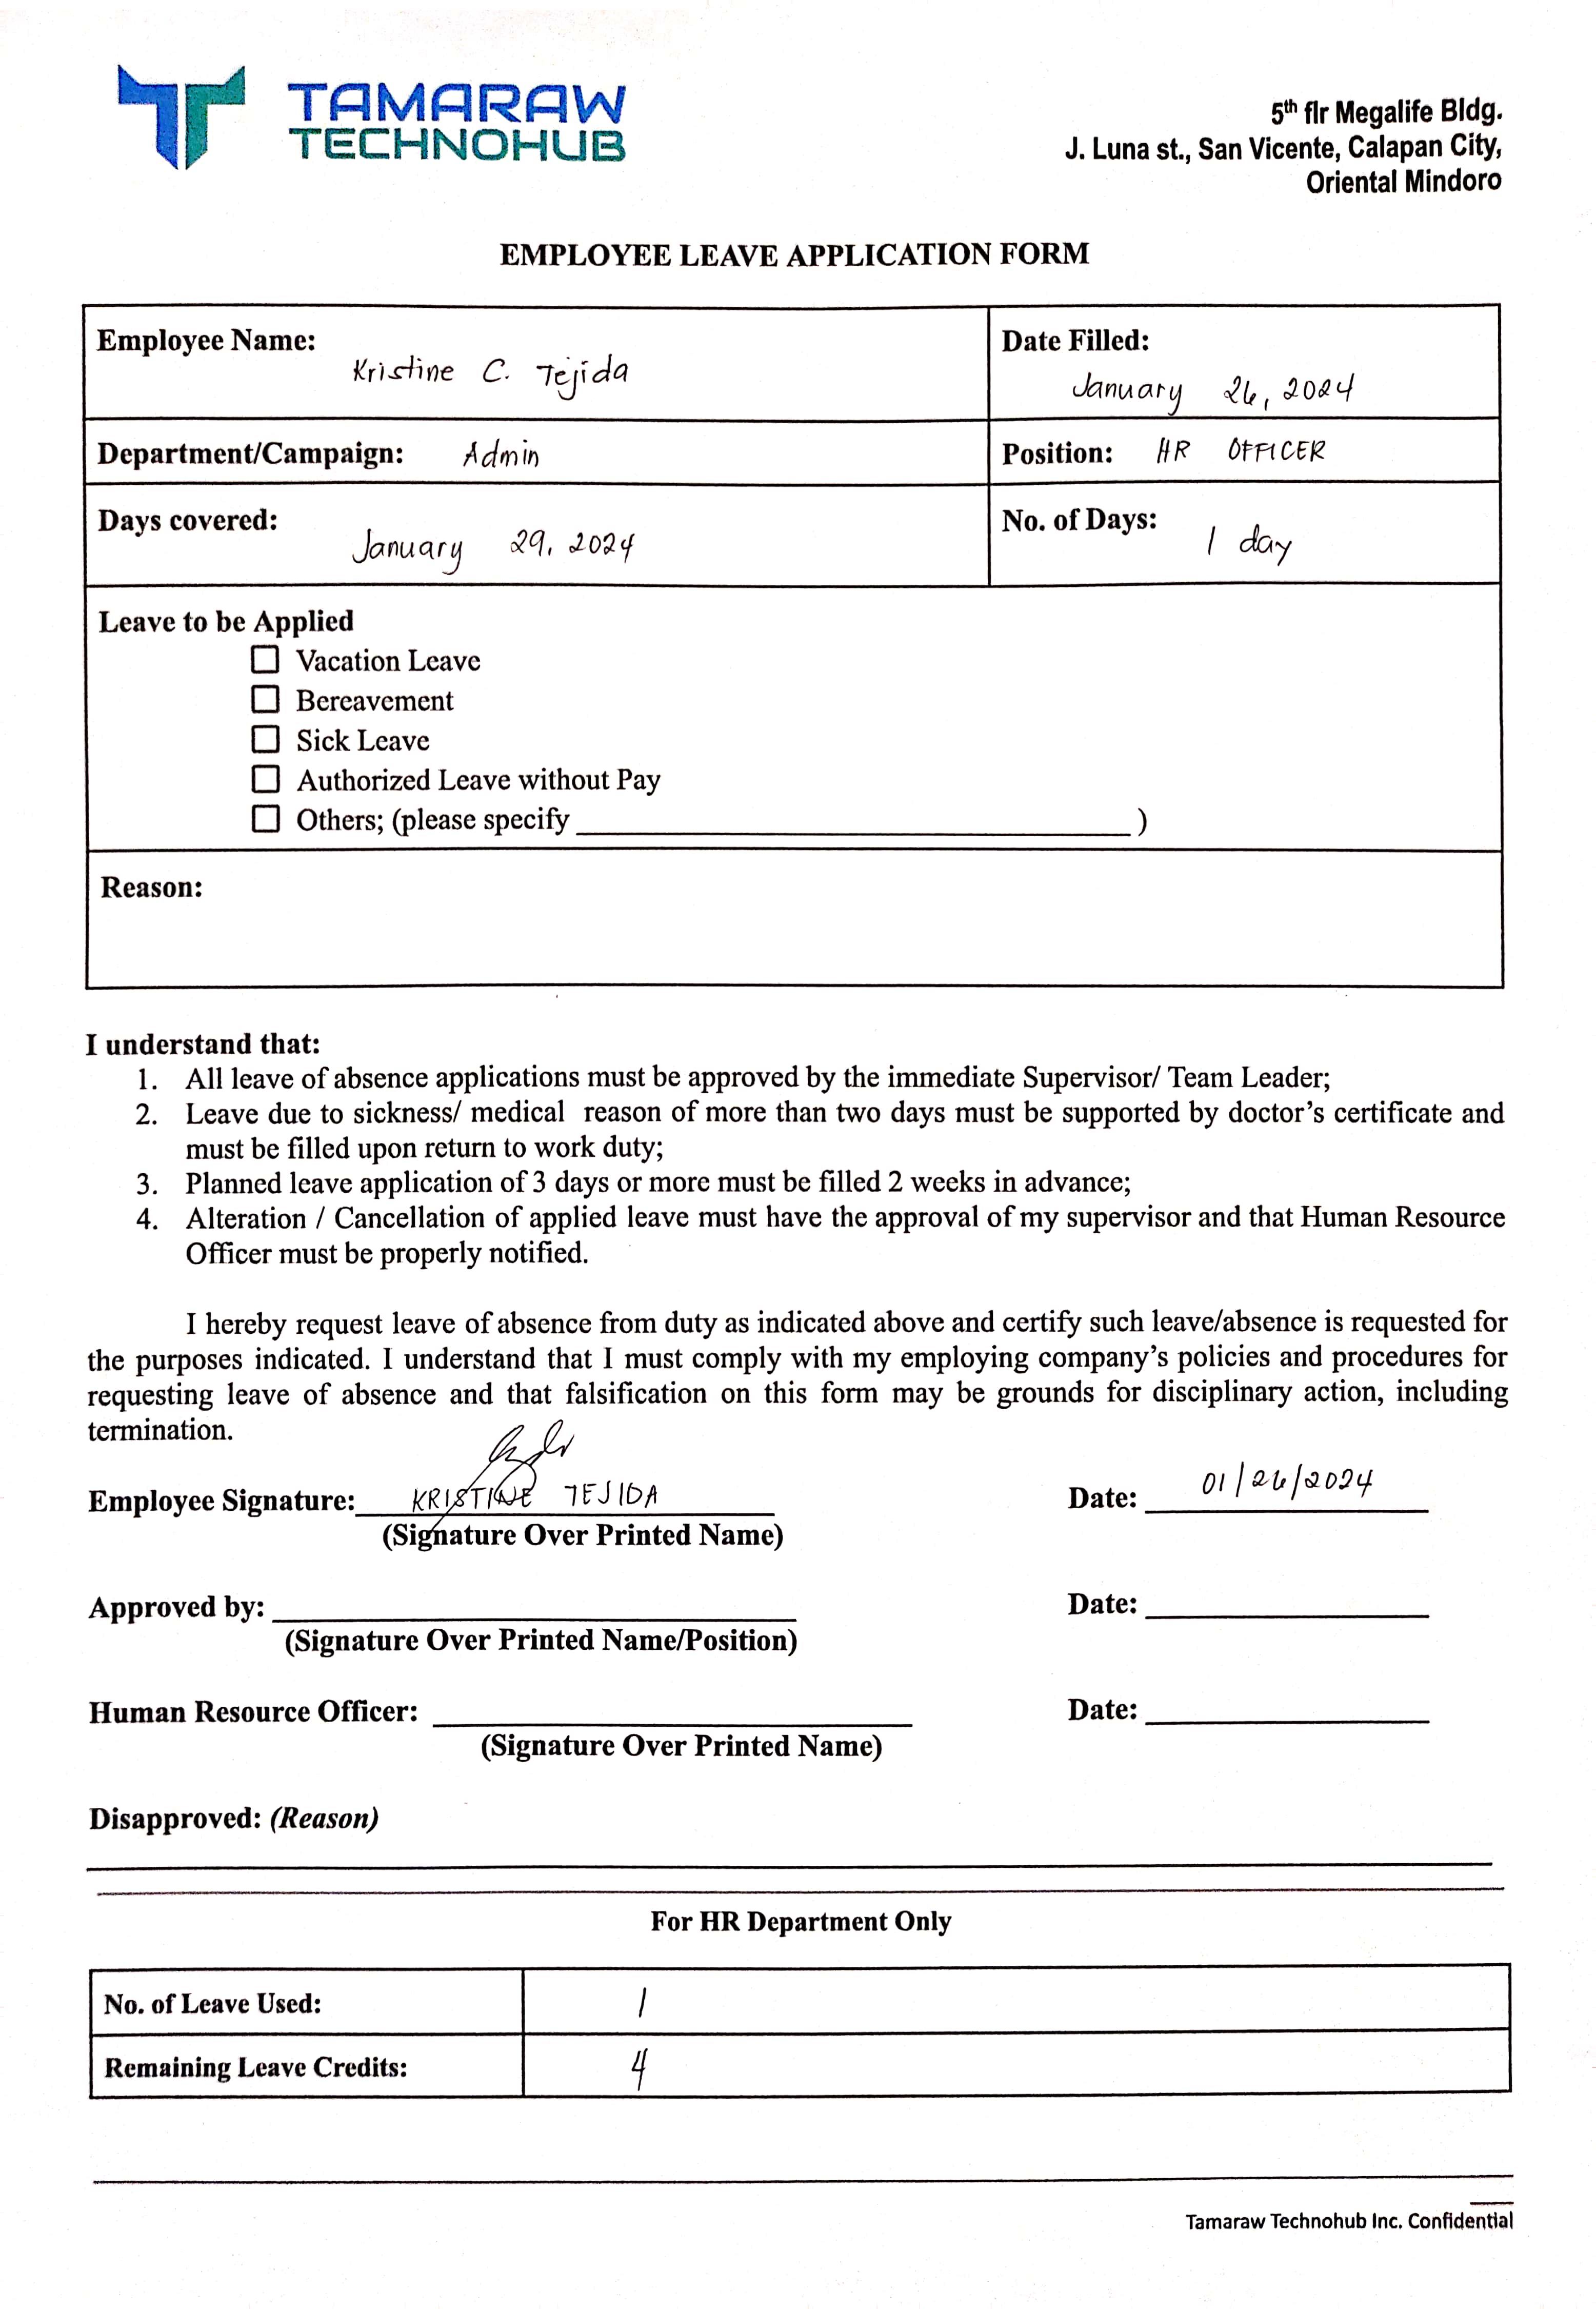 TAMARAW
TECHNOHUB
5th flr Megalife Bldg.
J. Luna st., San Vicente, Calapan City,
Oriental Mindoro
EMPLOYEE LEAVE APPLICATION FORM
Employee Name: Kristine C. Tejida
Date Filled: January 26, 2024
Department/Campaign: Admin
Position: HR OFFICER
Days covered: January 29, 2024
No. of Days: 1 day
Leave to be Applied
Vacation Leave
Bereavement
Sick Leave
Authorized Leave without Pay
Others; (please specify ____________________ )
Reason:
I understand that:
1. All leave of absence applications must be approved by the immediate Supervisor/ Team Leader;
2. Leave due to sickness/ medical reason of more than two days must be supported by doctor's certificate and
must be filled upon return to work duty;
3. Planned leave application of 3 days or more must be filled 2 weeks in advance;
4. Alteration / Cancellation of applied leave must have the approval of my supervisor and that Human Resource
Officer must be properly notified.
I hereby request leave of absence from duty as indicated above and certify such leave/absence is requested for
the purposes indicated. I understand that I must comply with my employing company's policies and procedures for
requesting leave of absence and that falsification on this form may be grounds for disciplinary action, including
termination.
Employee Signature: KRISTINE TEJIDA Date: 01/26/2024
(Signature Over Printed Name)
Approved by: ____________________ Date: ____________________
(Signature Over Printed Name/Position)
Human Resource Officer: ____________________ Date: ____________________
(Signature Over Printed Name)
Disapproved: (Reason)
For HR Department Only
No. of Leave Used: 1
Remaining Leave Credits: 4
Tamaraw Technohub Inc. Confidential